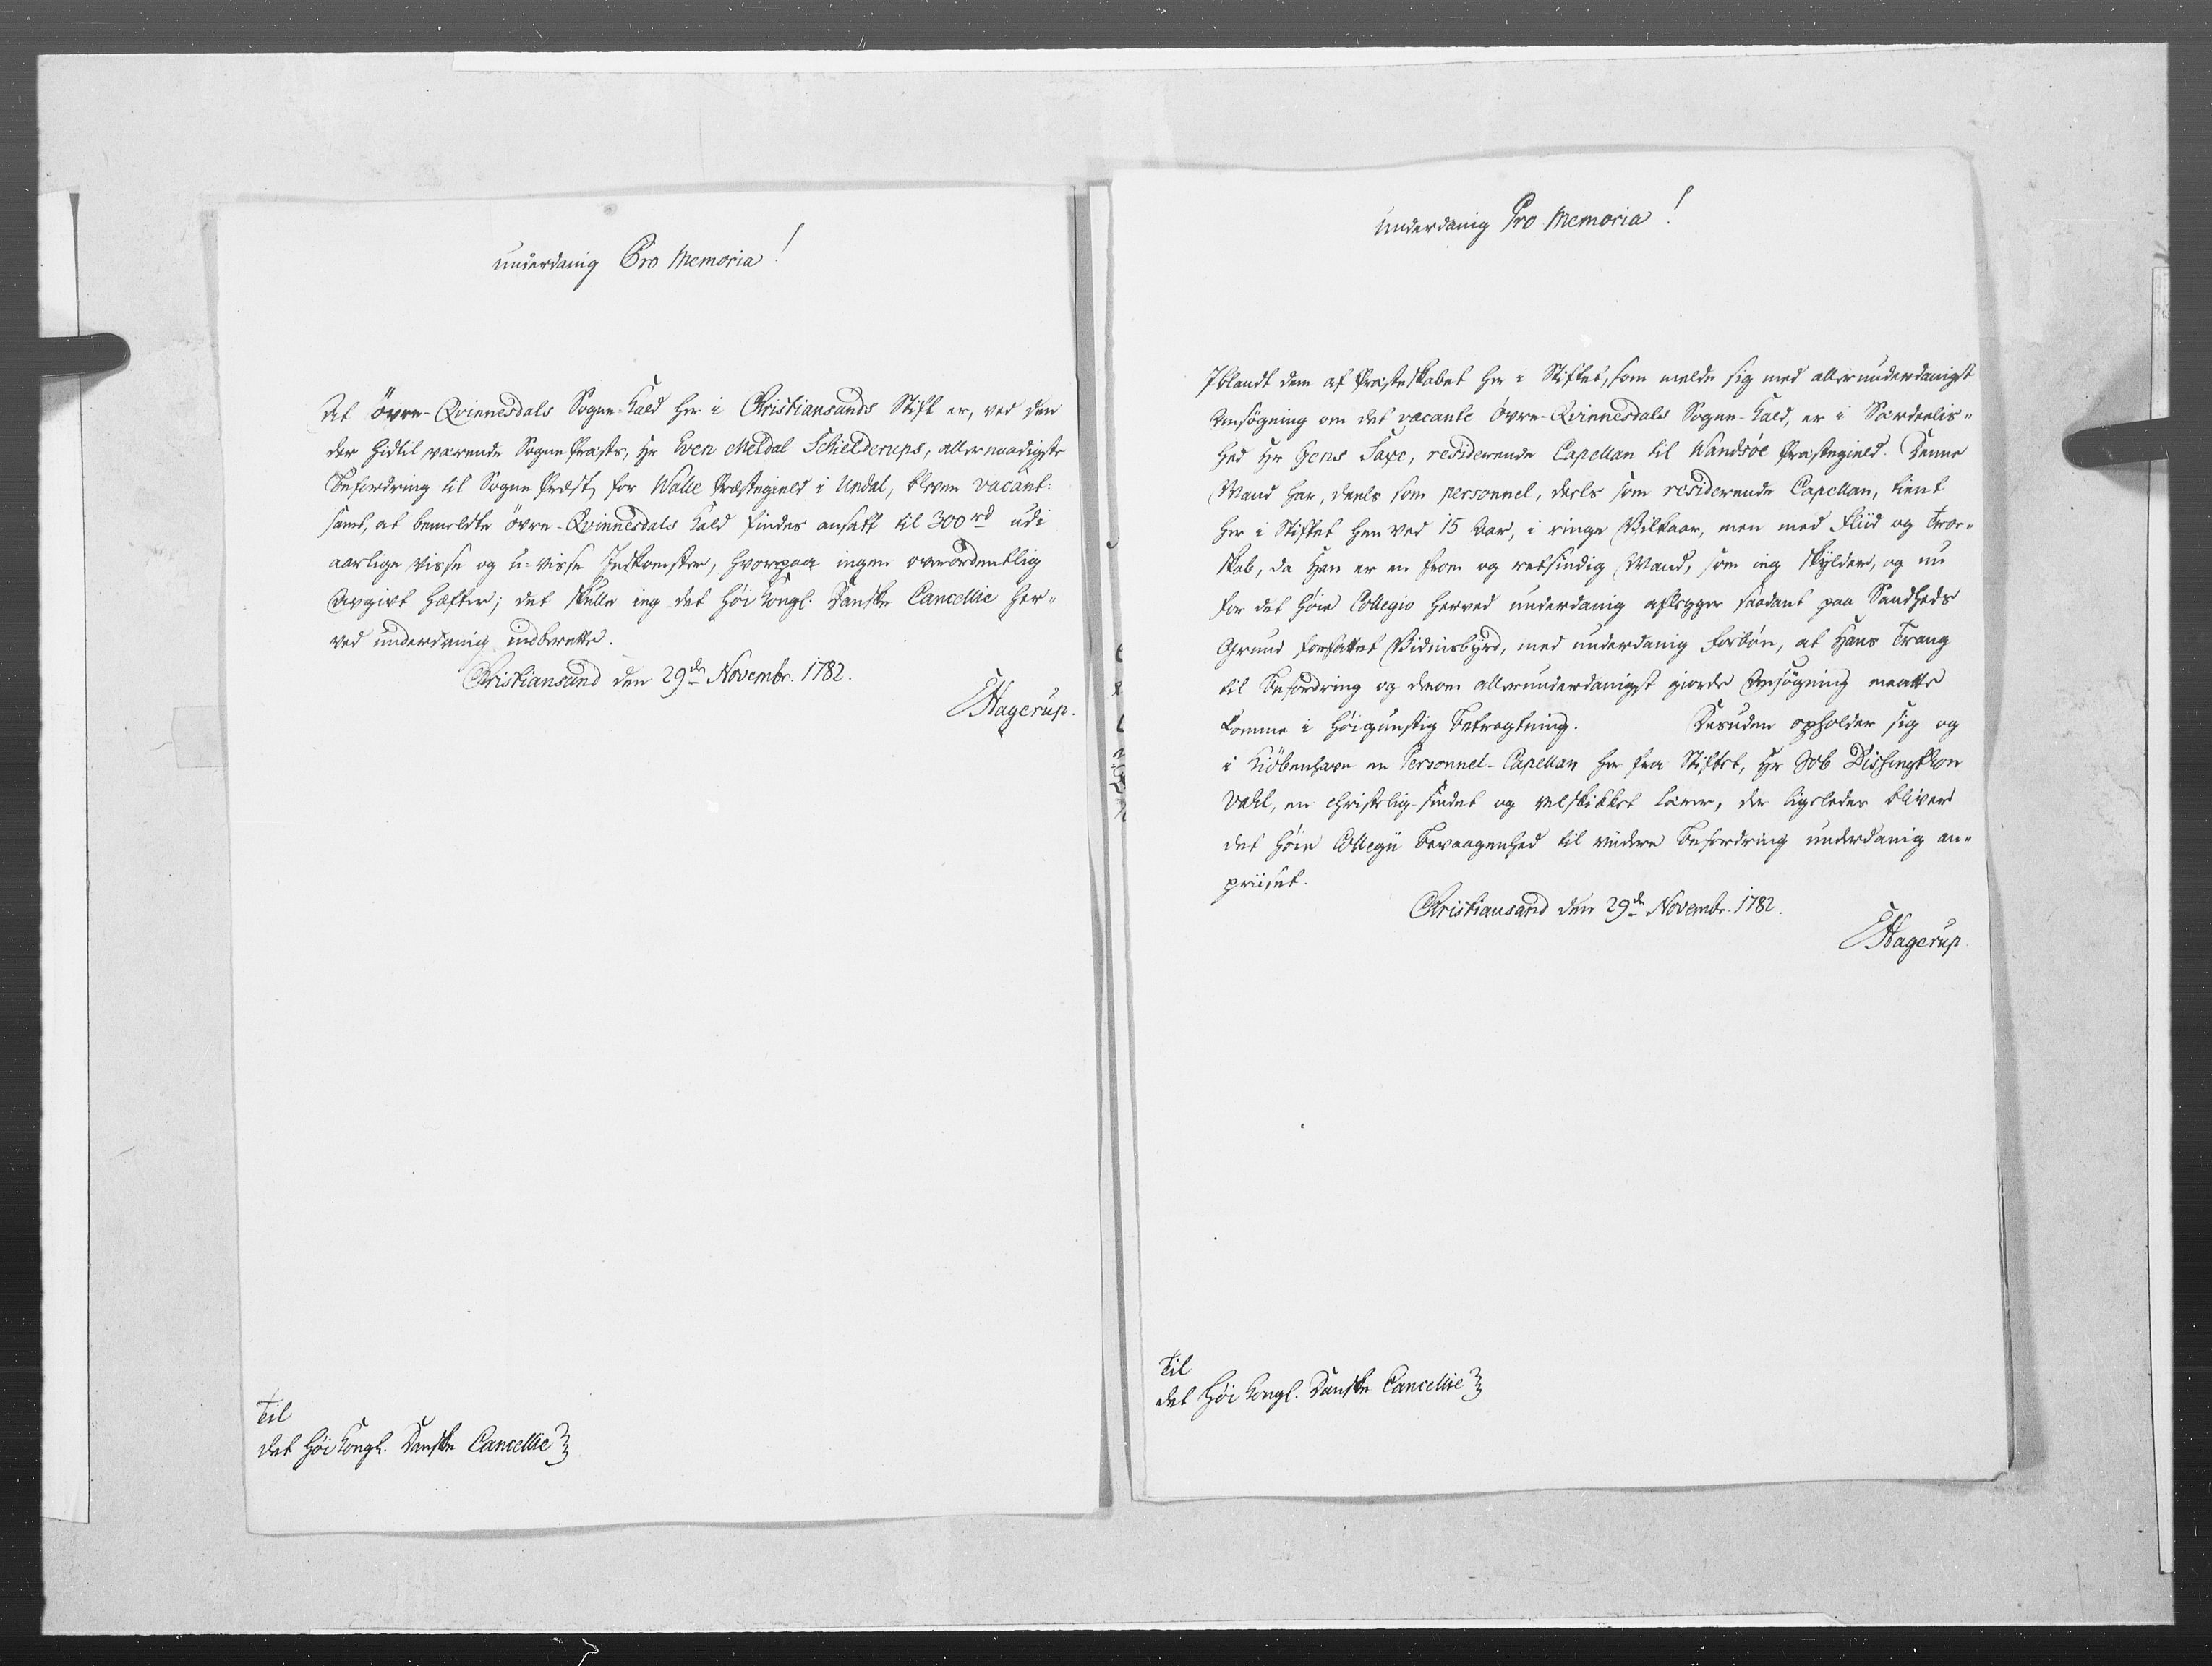 underdanig Pro Memoria!
At Övre-Qvinnesdals Sogne-Kald her i Christiansands Stift er, ved den
der hidtil værende Sogne Præsts, Hr Even Meldal Schielderups, allernaadigste
Befordring til Sogne Præst, for Walle Præstegield i Undal, bleven vacant:
samt, at bemeldte övre-Qvinnesdals Kald findes ansatt til 300 rd udi
aarlige visse og u-visse Indkomster, hvorpaa ingen overordentlig
Avgivt hæfter; det skulle ieg det Høi Kongl. Danske Cancellie her-
ved underdanig indberette.
Christiansand den 29de Novembr. 1782.
EHagerup.
Til
det Høi Kongl. Danske Cancellie
underdanig Pro Memoria!
Iblandt dem af Præsteskabet her i Stiftet, som melde sig med allerunderdanigst
Ansögning om det vacante övre-Qvinnesdals Sogne-Kald, er i Særdeelis-
hed Hr Jens Saxe, residerende Capellan til Wandsöe Præstegield. Denne
Mand har, deels som personnel, deels som residerende Capellan, tient
her i Stiftet hen ved 15 Aar, i ringe Vilkaar, men med Fliid og Troe-
skab, da Han er en from og retsindig Mand, som ieg skylder, og nu
for det høie Collegio herved underdanig aflegger saadant paa Sandheds
Grund forfattet Vidnisbyrd, med underdanig Forbön, at Hans Trang
til Befordring og derom allerunderdanigst giorde Ansögning maatte
komme i høigunstig Betragtning. Desuden opholder sig og
i Kiöbenhavn en Personnel-Capellan her fra Stiftet, Hr Job Dishingthon
Vahl, en christelig-sindet og velskikket Lærer, der ligeledes bliver
det høie Collegii Bevaagenhed til videre Befordring underdanig an-
priiset.
Christiansand den 29de Novembr. 1782.
EHagerup.
Til
det Høi Kongl. Danske Cancellie